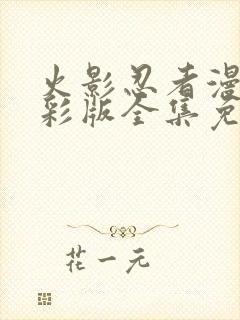 火影忍者漫
彩版全集免
花一元